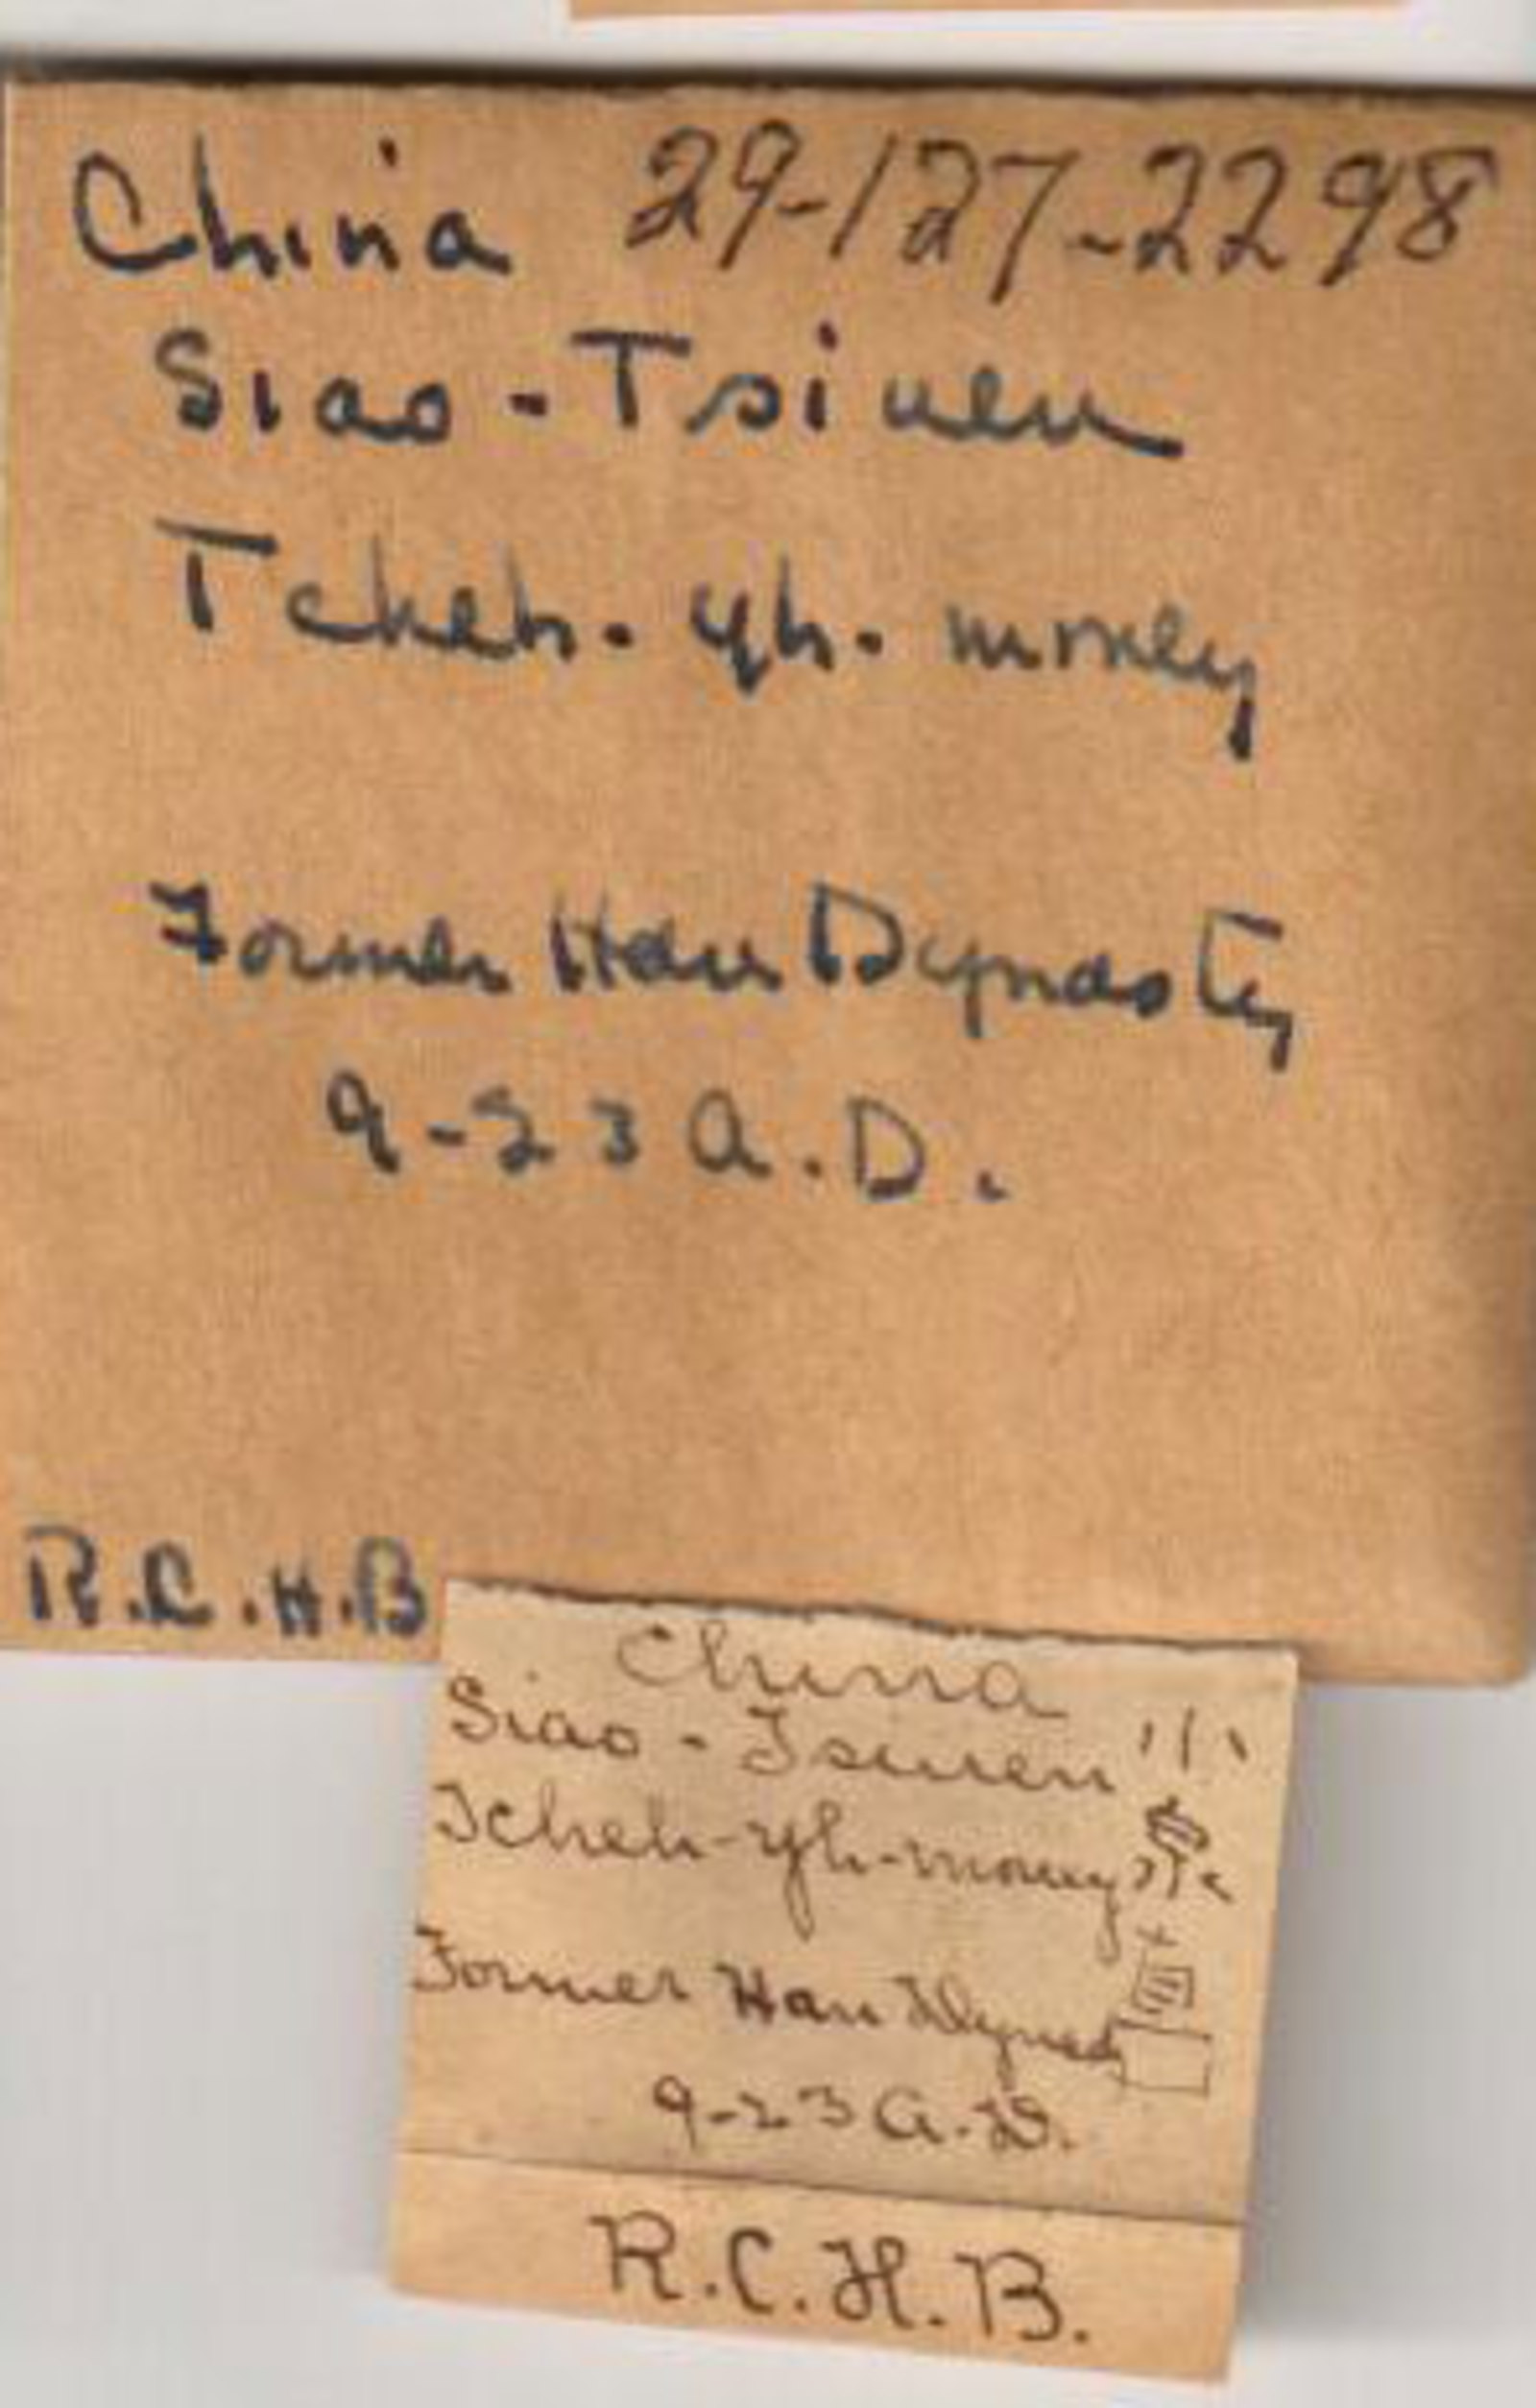 China 29-127-2298
Siao-Tsiuen
Tcheh-yh-money
Former Han Dynasty
9-23 A.D.
R.C.H.B
China
Siao-Tsiuen
Tcheh-yh-money
Former Han Dynas
9-23 A.D.
R.C.H.B.